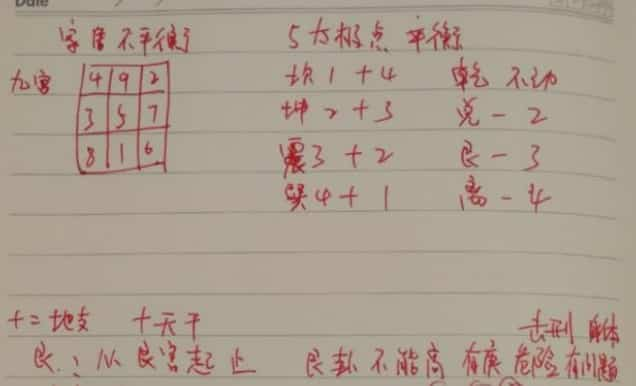 Date
字宫不平衡 5为极点 平衡
九宫 4 9 2 坎1+4 乾 不动
3 5 7 坤2+3 兑-2
8 1 6 震3+2 艮-3
巽4+1 离-4
十二地支 十天干 去刑
艮∴从艮宫起止 艮卦不能高 有庚 危险 有问题